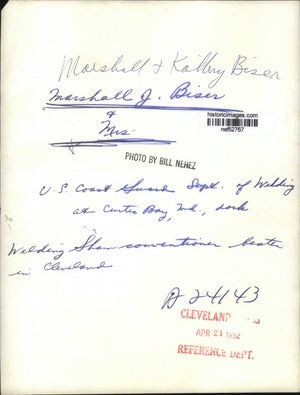 Marshall & Kathry Biser
Marshall J. Biser
&
Mrs.
historicimages.com
nef52767
PHOTO BY BILL NEHEZ
U.S. Coast Guard Dept. of Welding
at Curtis Bay, Md.,
Welding Show conventioner
in Cleveland
D 24143
CLEVELAND
APR 21 1962
REFERENCE DEPT.